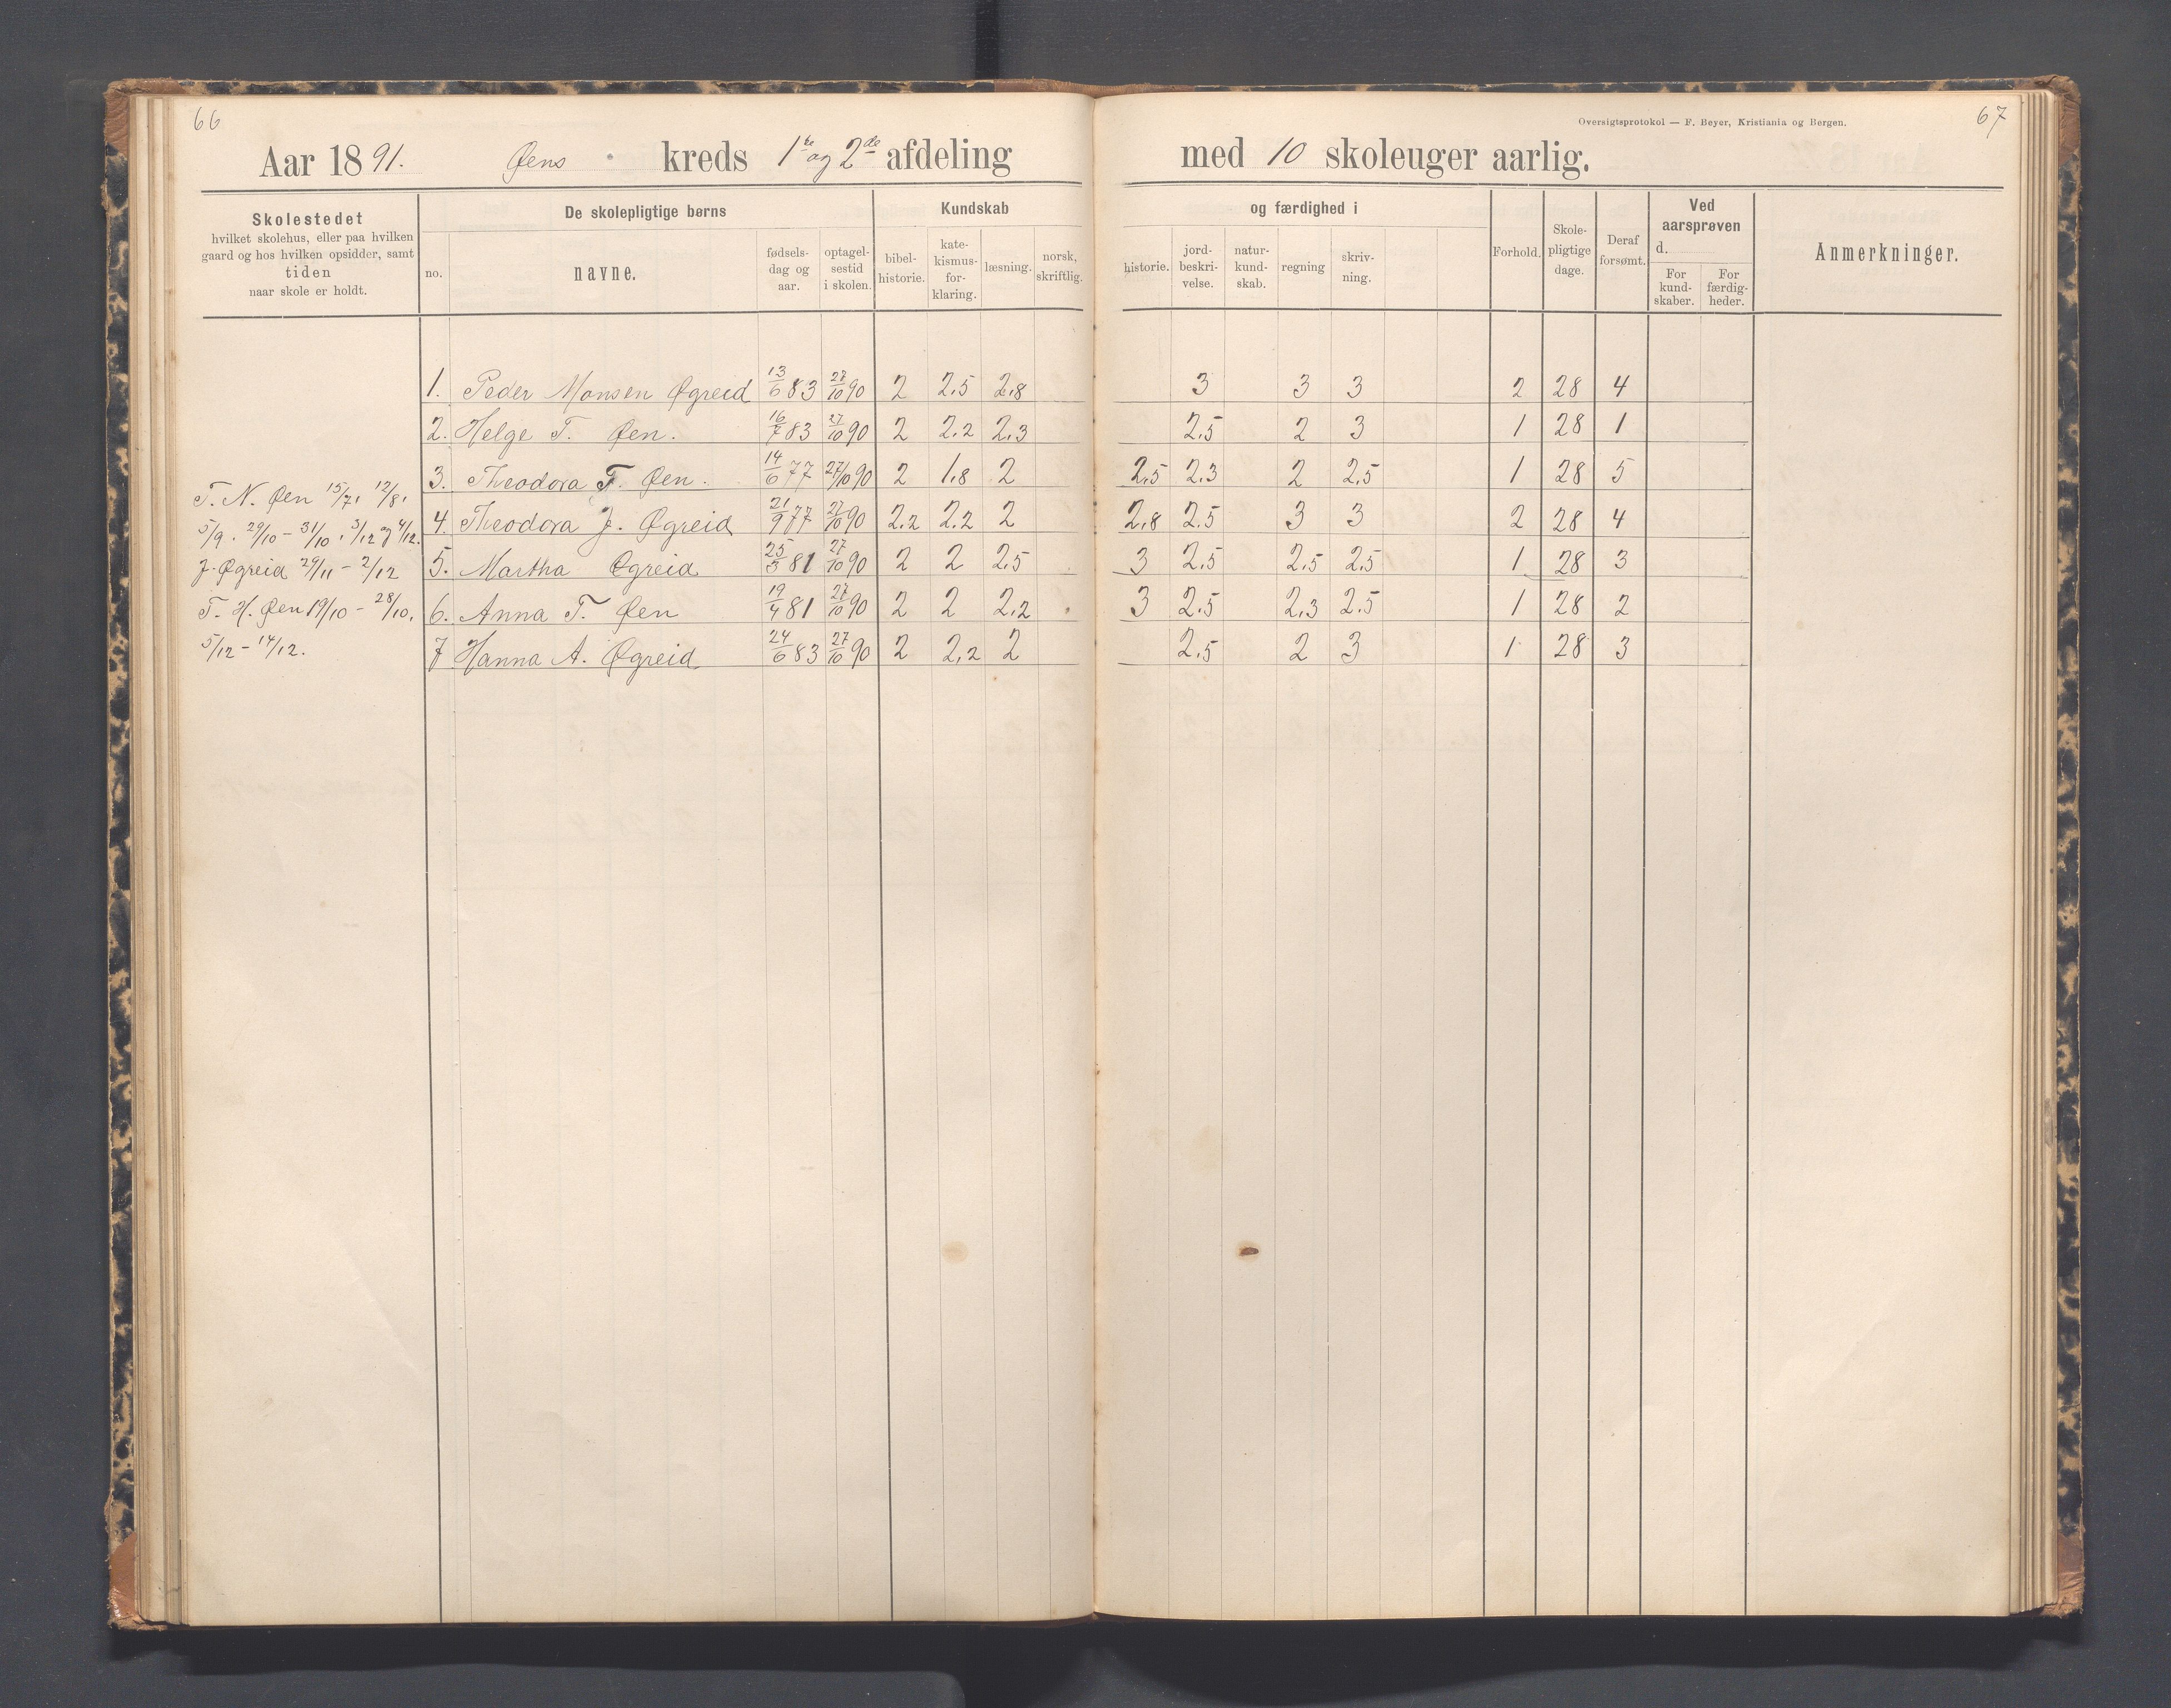 66
67
Oversigtsprotokol — F. Beyer, Kristiania og Bergen.
Aar 1891. Øens kreds 1ste og 2den afdeling med 10 skoleuger aarlig.
Skolestedet
hvilket skolehus, eller paa hvilken
gaard og hos hvilken opsidder, samt
tiden
naar skole er holdt.
De skolepligtige børns
no. navne. fødsels-dag og aar. optagel-sestid i skolen.
Kundskab og færdighed i
bibel-historie. kate-kismus-for-klaring. læsning. norsk, skriftlig. historie. jord-beskri-velse. natur-kund-skab. regning skriv-ning.
Forhold. Skole-pligtige dage. Deraf forsømt.
Ved aarsprøven d.
For kund-skaber. For færdig-heder.
Anmerkninger.
1. Peder Monsen Øgreid 13/6 83 27/10 90 2 2,5 2,8 3 3 3 2 28 4
2. Helge T. Øen. 16/7 83 27/10 90 2 2,2 2,3 2,5 2 3 1 28 1
3. Theodora T. Øen. 14/6 77 27/10 90 2 1,8 2 2,5 2,3 2 2,5 1 28 5
4. Theodora J. Øgreid 21/9 77 27/10 90 2,2 2,2 2 2,8 2,5 3 3 2 28 4
5. Martha Øgreid 25/3 81 27/10 90 2 2 2,5 3 2,5 2,5 2,5 1 28 3
6. Anna T. Øen 19/4 81 27/10 90 2 2 2,2 3 2,5 2,3 2,5 1 28 2
7 Hanna A. Øgreid 24/6 83 27/10 90 2 2,2 2 2,5 2 3 1 28 3
T. N. Øen 15/7, 12/8,
5/9. 29/10 – 31/10, 3/12 og 4/12.
J. Øgreid 29/11 – 2/12
T. H. Øen 19/10 – 28/10,
5/12 – 14/12.